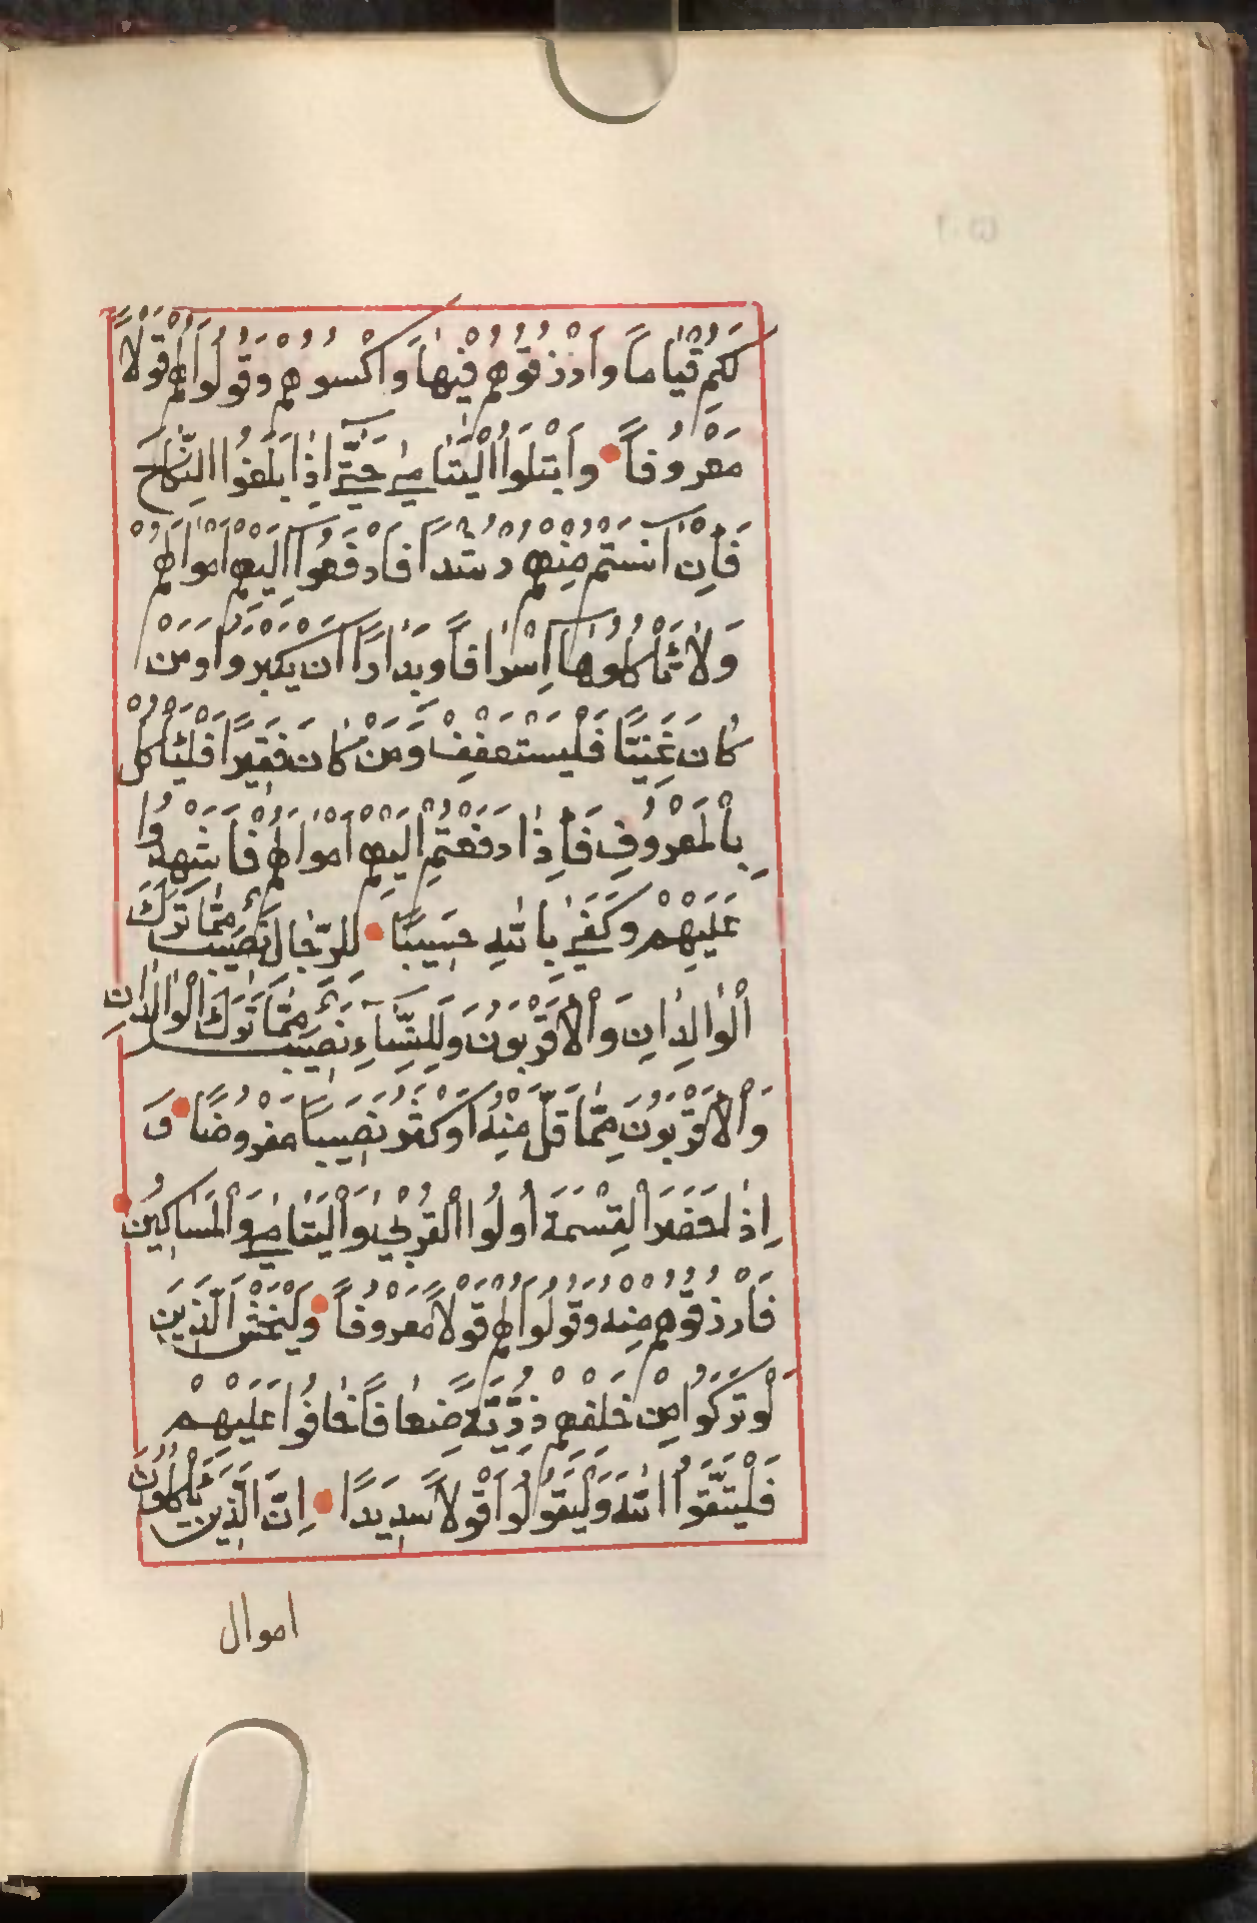 لَكُمْ قِيَامًا وَارْزُقُوهُمْ فِيهَا وَاكْسُوهُمْ وَقُولُوا لَهُمْ قَوْلًا
مَعْرُوفًا وَابْتَلُوا الْيَتَامٰى حَتّٰى اِذَا بَلَغُوا النِّكَاحَ
فَاِنْ اٰنَسْتُمْ مِنْهُمْ رُشْدًا فَادْفَعُوا اِلَيْهِمْ اَمْوَالَهُمْ
وَلَا تَأْكُلُوهَا اِسْرَافًا وَبِدَارًا اَنْ يَكْبَرُوا وَمَنْ
كَانَ غَنِيًّا فَلْيَسْتَعْفِفْ وَمَنْ كَانَ فَقِيرًا فَلْيَأْكُلْ
بِالْمَعْرُوفِ فَاِذَا دَفَعْتُمْ اِلَيْهِمْ اَمْوَالَهُمْ فَاَشْهِدُوا
عَلَيْهِمْ وَكَفٰى بِاللّٰهِ حَسِيبًا لِلرِّجَالِ نَصِيبٌ مِمَّا تَرَكَ
الْوَالِدَانِ وَالْاَقْرَبُونَ وَلِلنِّسَاءِ نَصِيبٌ مِمَّا تَرَكَ الْوَالِدَانِ
وَالْاَقْرَبُونَ مِمَّا قَلَّ مِنْهُ اَوْ كَثُرَ نَصِيبًا مَفْرُوضًا وَ
اِذَا حَضَرَ الْقِسْمَةَ اُولُوا الْقُرْبٰى وَالْيَتَامٰى وَالْمَسَاكِينُ
فَارْزُقُوهُمْ مِنْهُ وَقُولُوا لَهُمْ قَوْلًا مَعْرُوفًا وَلْيَخْشَ الَّذِينَ
لَوْ تَرَكُوا مِنْ خَلْفِهِمْ ذُرِّيَّةً ضِعَافًا خَافُوا عَلَيْهِمْ
فَلْيَتَّقُوا اللّٰهَ وَلْيَقُولُوا قَوْلًا سَدِيدًا اِنَّ الَّذِينَ يَأْكُلُونَ
اموال